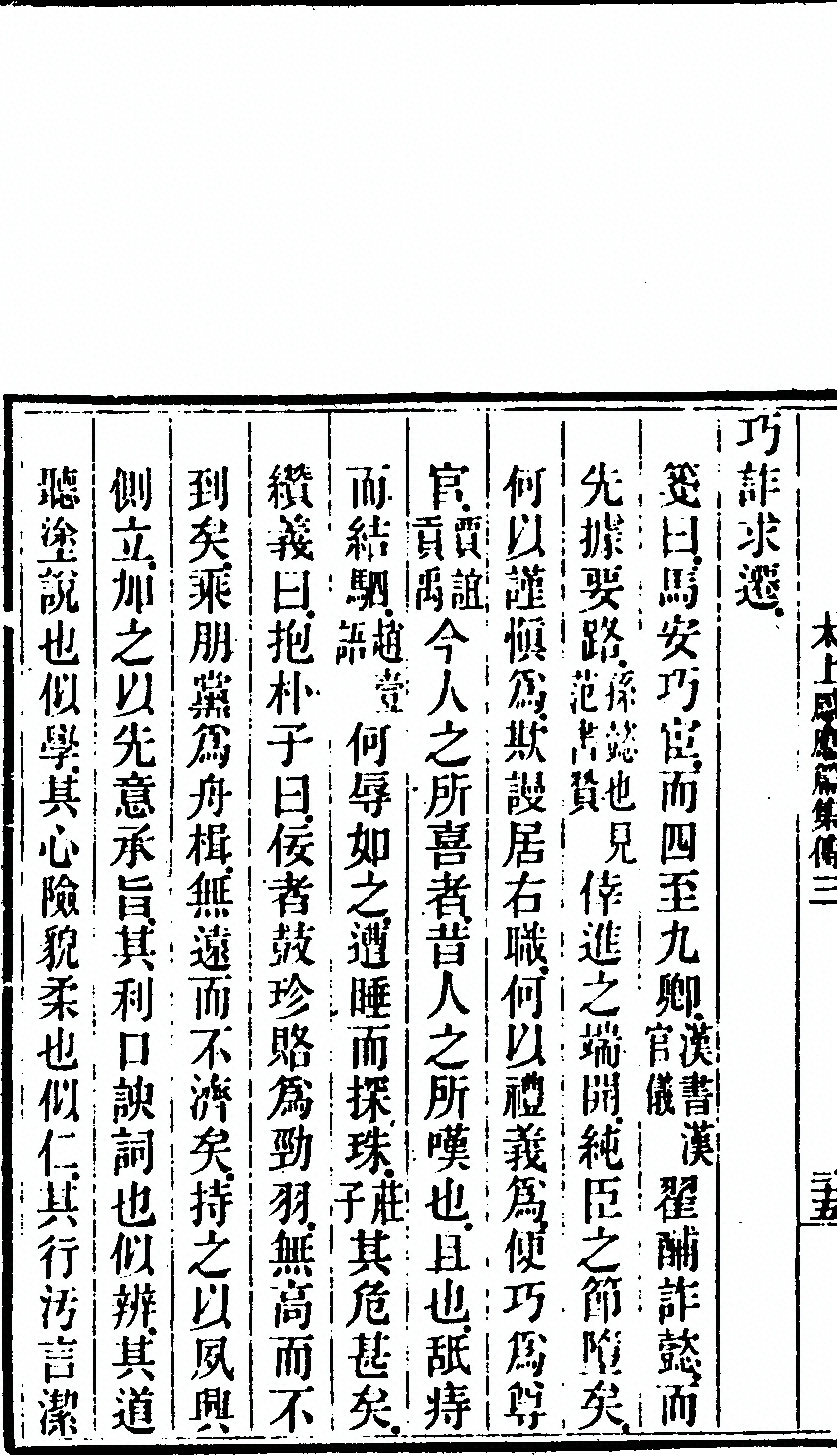 太上感應篇集傳三
二十五
巧詐求遷。
箋曰。馬安巧宦。而四至九卿。漢書漢官儀翟酺詐懿。而
先據要路。孫懿也見范書贊倖進之端開。純臣之節墮矣。
何以謹慎爲。欺謾居右職。何以禮義爲。便巧爲尊
官。賈誼貢禹今人之所喜者。昔人之所嘆也。且也。舐痔
而結駟。趙壹語何辱如之。遭睡而探珠。莊子其危甚矣。
纘義曰。抱朴子曰。佞者鼓珍賂爲勁羽。無高而不
到矣。乘朋黨爲舟楫。無遠而不濟矣。持之以夙興
側立。加之以先意承旨。其利口諛詞也似辨。其道
聽塗說也似學。其心險貌柔也似仁。其行汚言潔